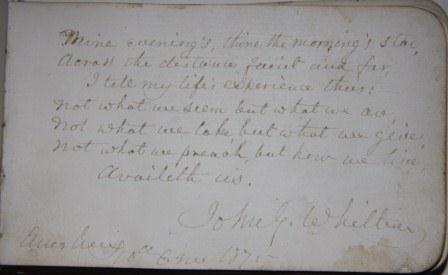 Mine evening's, thine the morning's star,
Across the distance faint and far,
I tell my life's experience thus:
Not what we seem but what we are,
Not what we take but what we give,
Not what we preach, but how we live,
Availeth us.
John G. Whittier
Amesbury 10th 6 mo 187